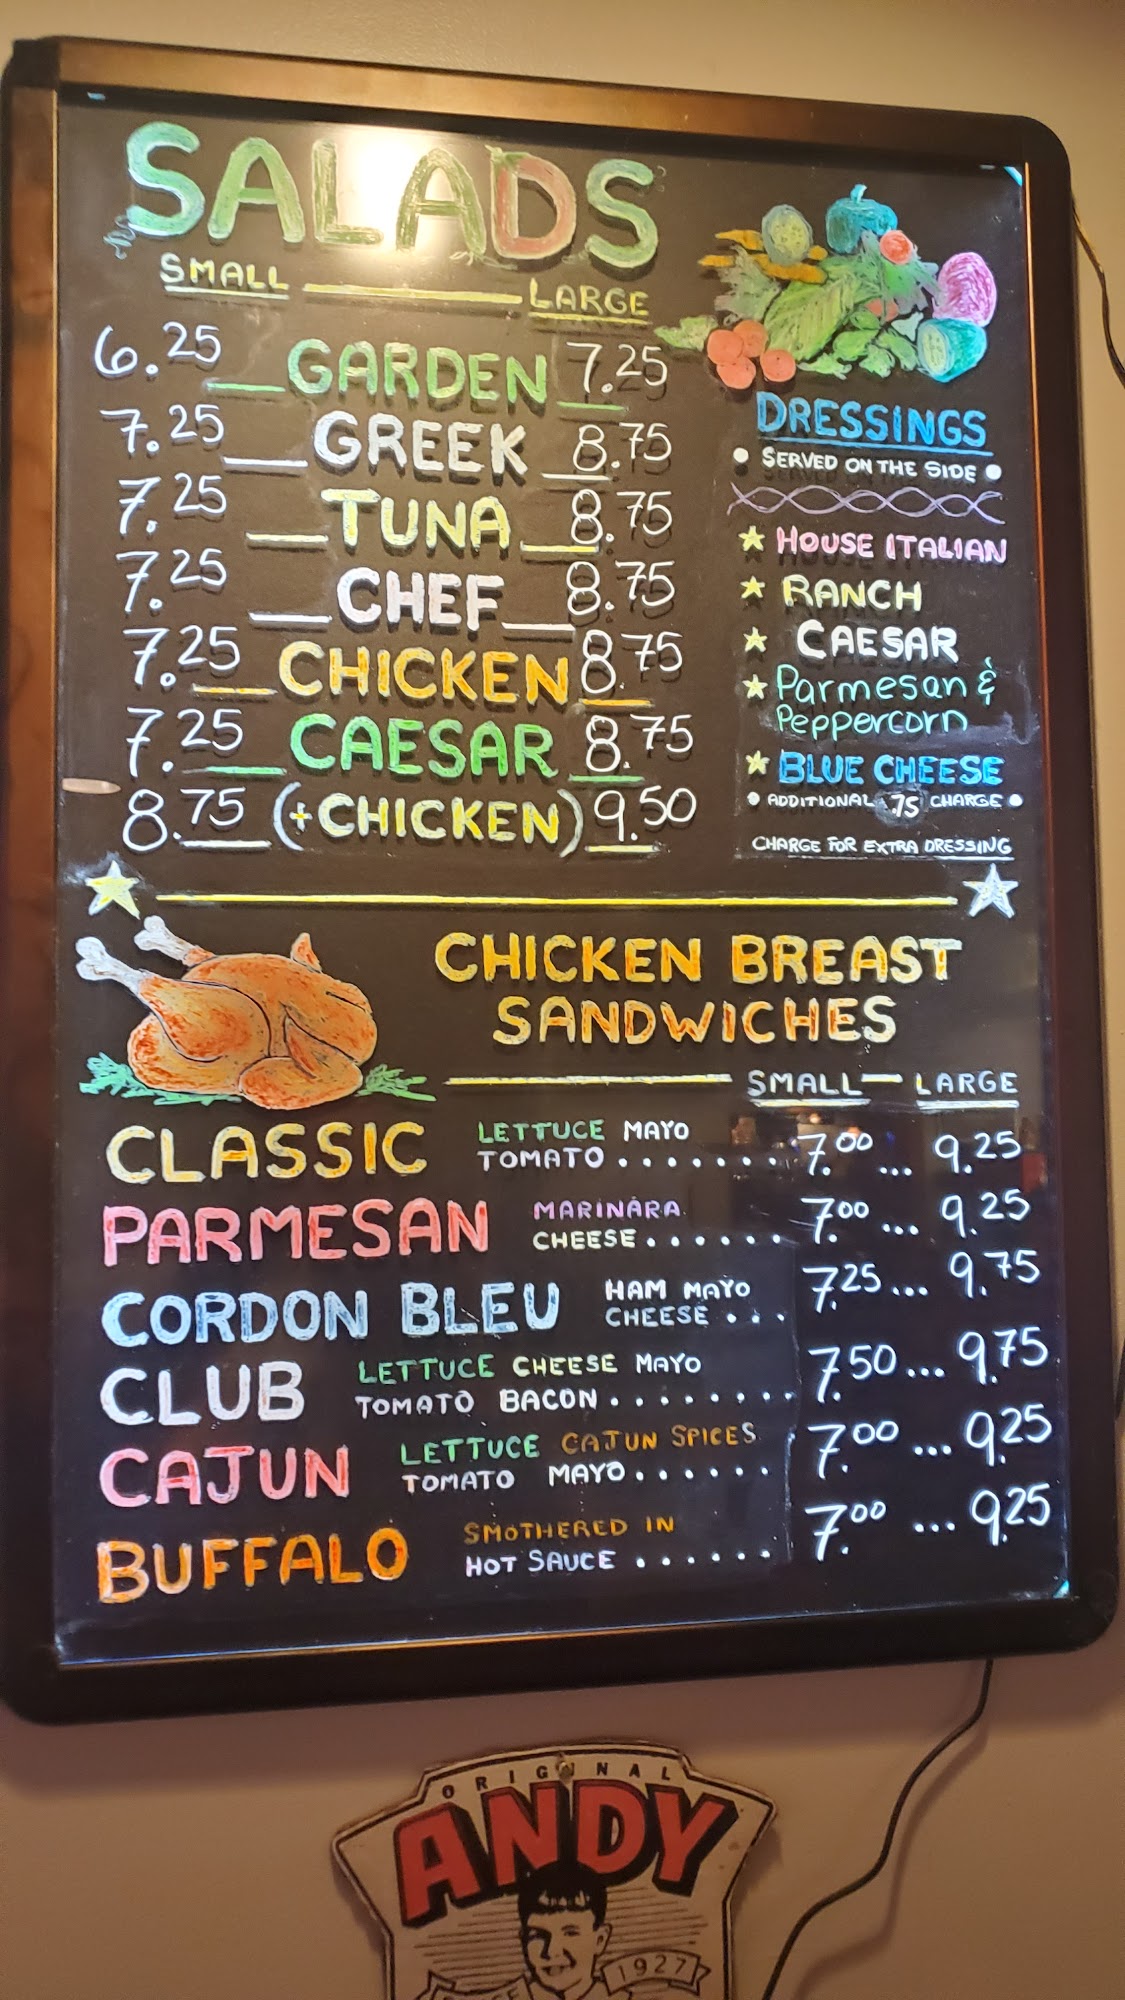 SALADS
SMALL LARGE
6.25 GARDEN 7.25
7.25 GREEK 8.75
7.25 TUNA 8.75
7.25 CHEF 8.75
7.25 CHICKEN 8.75
7.25 CAESAR 8.75
8.75 (+CHICKEN) 9.50
DRESSINGS
• SERVED ON THE SIDE •
★ HOUSE ITALIAN
★ RANCH
★ CAESAR
★ Parmesan &
Peppercorn
★ BLUE CHEESE
• ADDITIONAL .75 CHARGE •
CHARGE FOR EXTRA DRESSING
CHICKEN BREAST
SANDWICHES
SMALL LARGE
CLASSIC LETTUCE MAYO
TOMATO ....... 7.00 ... 9.25
PARMESAN MARINARA
CHEESE ...... 7.00 ... 9.25
CORDON BLEU HAM MAYO
CHEESE ... 7.25 ... 9.75
CLUB LETTUCE CHEESE MAYO
TOMATO BACON ......... 7.50 ... 9.75
CAJUN LETTUCE CAJUN SPICES
TOMATO MAYO ...... 7.00 ... 9.25
BUFFALO SMOTHERED IN
HOT SAUCE ...... 7.00 ... 9.25
ORIGINAL
ANDY
1927